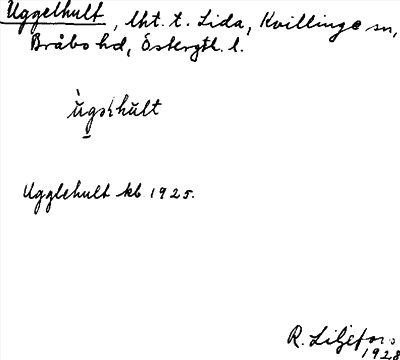 Uggelhult, lht. t. Lida, Kvillinge sn,
Bråbo hd, Östergtl. l.
Ugglehult kb 1925.
R. Liljefors
1928